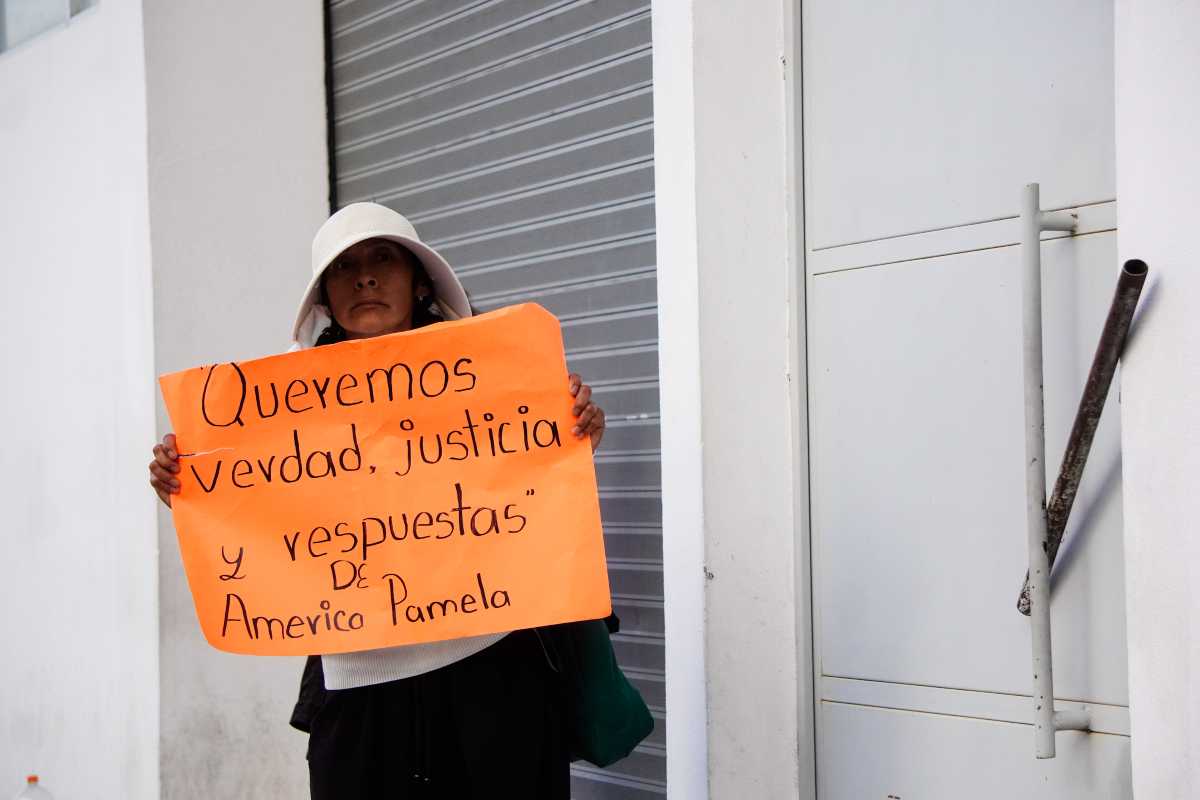 "Queremos
verdad, justicia
y respuestas"
DE
Americo Pamela